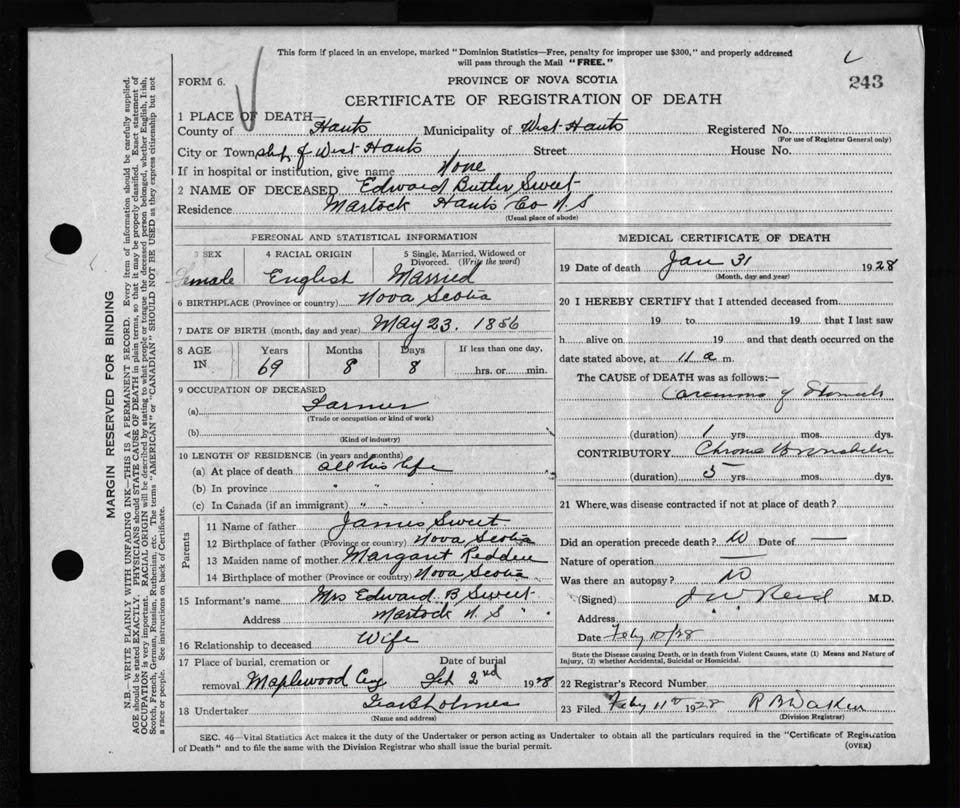 This form if placed in an envelope, marked "Dominion Statistics—Free, penalty for improper use $300," and properly addressed
will pass through the Mail "FREE."
FORM 6.
PROVINCE OF NOVA SCOTIA
243
CERTIFICATE OF REGISTRATION OF DEATH
1 PLACE OF DEATH—
County of Hants Municipality of West Hants Registered No.
(For use of Registrar General only)
City or Township of West Hants Street House No.
If in hospital or institution, give name None
2 NAME OF DECEASED Edward Butler Sweet
Residence Martock Hants Co N.S
(Usual place of abode)
PERSONAL AND STATISTICAL INFORMATION
3 SEX 4 RACIAL ORIGIN 5 Single, Married, Widowed or Divorced. (Write the word)
male English Married
6 BIRTHPLACE (Province or country) Nova Scotia
7 DATE OF BIRTH (month, day and year) May 23. 1856
8 AGE IN Years Months Days If less than one day,
69 8 8 hrs. or min.
9 OCCUPATION OF DECEASED
(a) Farmer
(Trade or occupation or kind of work)
(b)
(Kind of industry)
10 LENGTH OF RESIDENCE (in years and months)
(a) At place of death all his life
(b) In province " "
(c) In Canada (if an immigrant) " "
Parents
11 Name of father James Sweet
12 Birthplace of father (Province or country) Nova Scotia
13 Maiden name of mother Margaret Redden
14 Birthplace of mother (Province or country) Nova Scotia
15 Informant's name Mrs Edward B Sweet
Address Martock N. S
16 Relationship to deceased Wife
17 Place of burial, cremation or Date of burial
removal Maplewood Cey Feb 2nd 1928
18 Undertaker Geo B Holmes
(Name and address)
MEDICAL CERTIFICATE OF DEATH
19 Date of death Jan 31 1928
(Month, day and year)
20 I HEREBY CERTIFY that I attended deceased from
19 to 19 that I last saw
h alive on 19 and that death occurred on the
date stated above, at 11 a m.
The CAUSE of DEATH was as follows:—
Carcinoma of Stomach
(duration) 1 yrs. mos. dys.
CONTRIBUTORY Chronic
(duration) 5 yrs. mos. dys.
21 Where was disease contracted if not at place of death?
Did an operation precede death? No Date of —
Nature of operation —
Was there an autopsy? No
(Signed) J W Reid M.D.
Address " "
Date Feby 10/28
State the Disease causing Death, or in death from Violent Causes, state (1) Means and Nature of
Injury, (2) whether Accidental, Suicidal or Homicidal.
22 Registrar's Record Number
23 Filed Feby 11th 1928 R B Dakin
(Division Registrar)
SEC. 46—Vital Statistics Act makes it the duty of the Undertaker or person acting as Undertaker to obtain all the particulars required in the "Certificate of Registration
of Death" and to file the same with the Division Registrar who shall issue the burial permit.
(OVER)
MARGIN RESERVED FOR BINDING
N.B.—WRITE PLAINLY WITH UNFADING INK—THIS IS A PERMANENT RECORD. Every item of information should be carefully supplied.
AGE should be stated EXACTLY. PHYSICIANS should STATE CAUSE OF DEATH in plain terms, so that it may be properly classified. Exact statement of
OCCUPATION is very important. RACIAL ORIGIN will be described by stating to what people or tongue the deceased person belonged, whether English, Irish,
Scotch, French, German, Russian, Ruthenian, etc. The terms "AMERICAN" or "CANADIAN" SHOULD NOT BE USED as they express citizenship but not
a race or people. See instructions on back of Certificate.